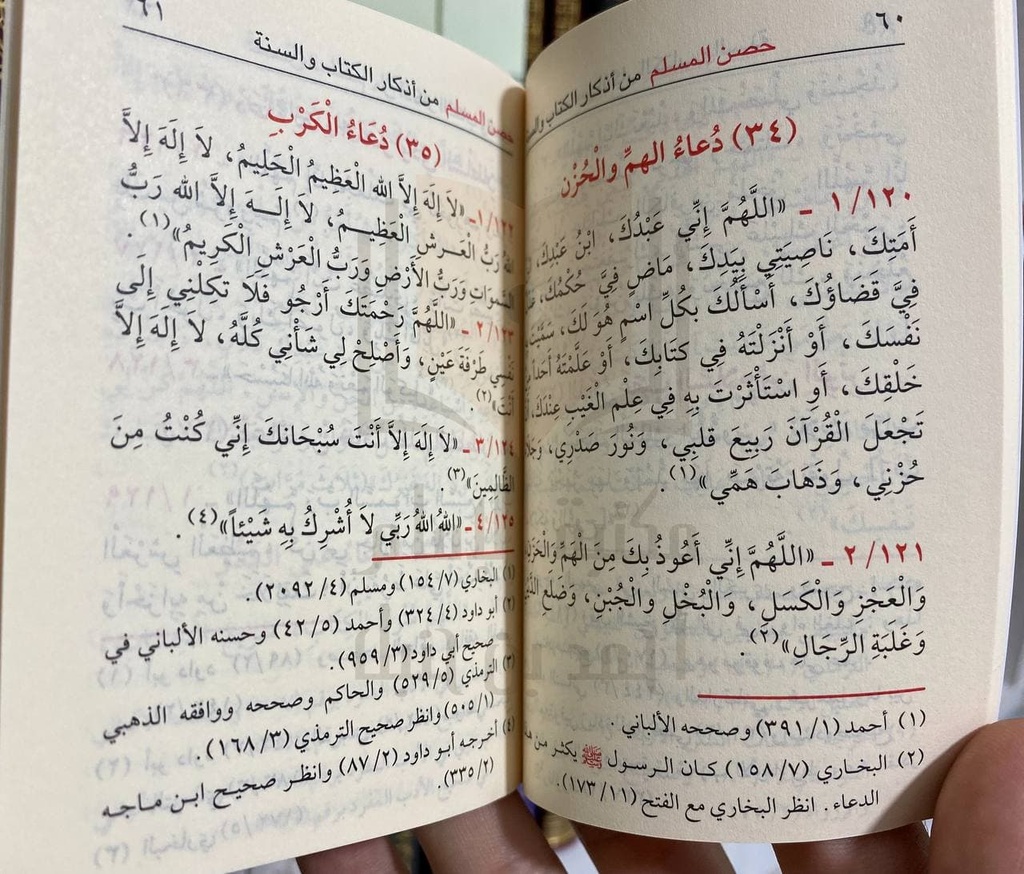 ٦٠
حصن المسلم من أذكار الكتاب
(٣٤) دُعَاءُ الهمِّ والْحُزْنِ
١/١٢٠ - «اللَّهُمَّ إِنِّي عَبْدُكَ، ابْنُ عَبْدِكَ،
أَمَتِكَ، نَاصِيَتِي بِيَدِكَ، مَاضٍ فِيَّ حُكْمُكَ،
فِيَّ قَضَاؤُكَ، أَسْأَلُكَ بِكُلِّ اسْمٍ هُوَ لَكَ، سَمَّيْتَ
نَفْسَكَ، أَوْ أَنْزَلْتَهُ فِي كِتَابِكَ، أَوْ عَلَّمْتَهُ أَحَداً
خَلْقِكَ، أَوِ اسْتَأْثَرْتَ بِهِ فِي عِلْمِ الْغَيْبِ عِنْدَكَ،
تَجْعَلَ الْقُرْآنَ رَبِيعَ قَلبِي، وَنُورَ صَدْرِي،
حُزْنِي، وَذَهَابَ هَمِّي»(١).
٢/١٢١ - «اللَّهُمَّ إِنِّي أَعُوذُ بِكَ مِنَ الْهَمِّ وَالْحَزَنِ
وَالْعَجْزِ وَالْكَسَلِ، وَالبُخْلِ والْجُبْنِ، وَضَلَعِ
وَغَلَبَةِ الرِّجَالِ»(٢).
(١) أحمد (٣٩١/١) وصححه الألباني.
(٢) البخاري (١٥٨/٧) كان الرسول ﷺ يكثر من
الدعاء. انظر البخاري مع الفتح (١٧٣/١١).
٦١
حصن المسلم من أذكار الكتاب والسنة
(٣٥) دُعَاءُ الْكَرْبِ
١/١٢٢- «لاَ إِلَهَ إِلاَّ الله الْعَظِيمُ الْحَلِيمُ، لاَ إِلَهَ إِلاَّ
اللهُ رَبُّ الْعَرشِ الْعَظِيمُ، لاَ إِلَهَ إِلاَّ الله رَبُّ
السَّموَاتِ وَرَبُّ الأَرْضِ وَرَبُّ الْعَرْشِ الْكَرِيمُ»(١).
٢/١٢٣ - «اللَّهُمَّ رَحْمَتَكَ أَرْجُو فَلَا تَكِلْنِي إِلَى
نَفْسِي طَرْفَةَ عَيْنٍ، وَأَصْلِحْ لِي شَأْنِي كُلَّهُ، لاَ إِلَهَ إِلاَّ
أَنْتَ»(٢).
٣/١٢٤ - «لاَ إِلَهَ إِلاَّ أَنْتَ سُبْحَانَكَ إِنِّي كُنْتُ مِنَ
الظَّالِمِينَ»(٣)
٤/١٢٥ - «اللهُ اللهُ رَبِّي لاَ أُشْرِكُ بِهِ شَيْئاً»(٤).
(١) البخاري (١٥٤/٧) ومسلم (٢٠٩٢/٤).
(٢) أبو داود (٣٢٤/٤) وأحمد (٤٢/٥) وحسنه الألباني في
صحيح أبي داود (٩٥٩/٣).
(٣) الترمذي (٥٢٩/٥) والحاكم وصححه ووافقه الذهبي
(٥٠٥/١) وانظر صحيح الترمذي (١٦٨/٣).
(٤) أخرجه أبو داود (٨٧/٢) وانظر صحيح ابن ماجه
(٣٣٥/٢).